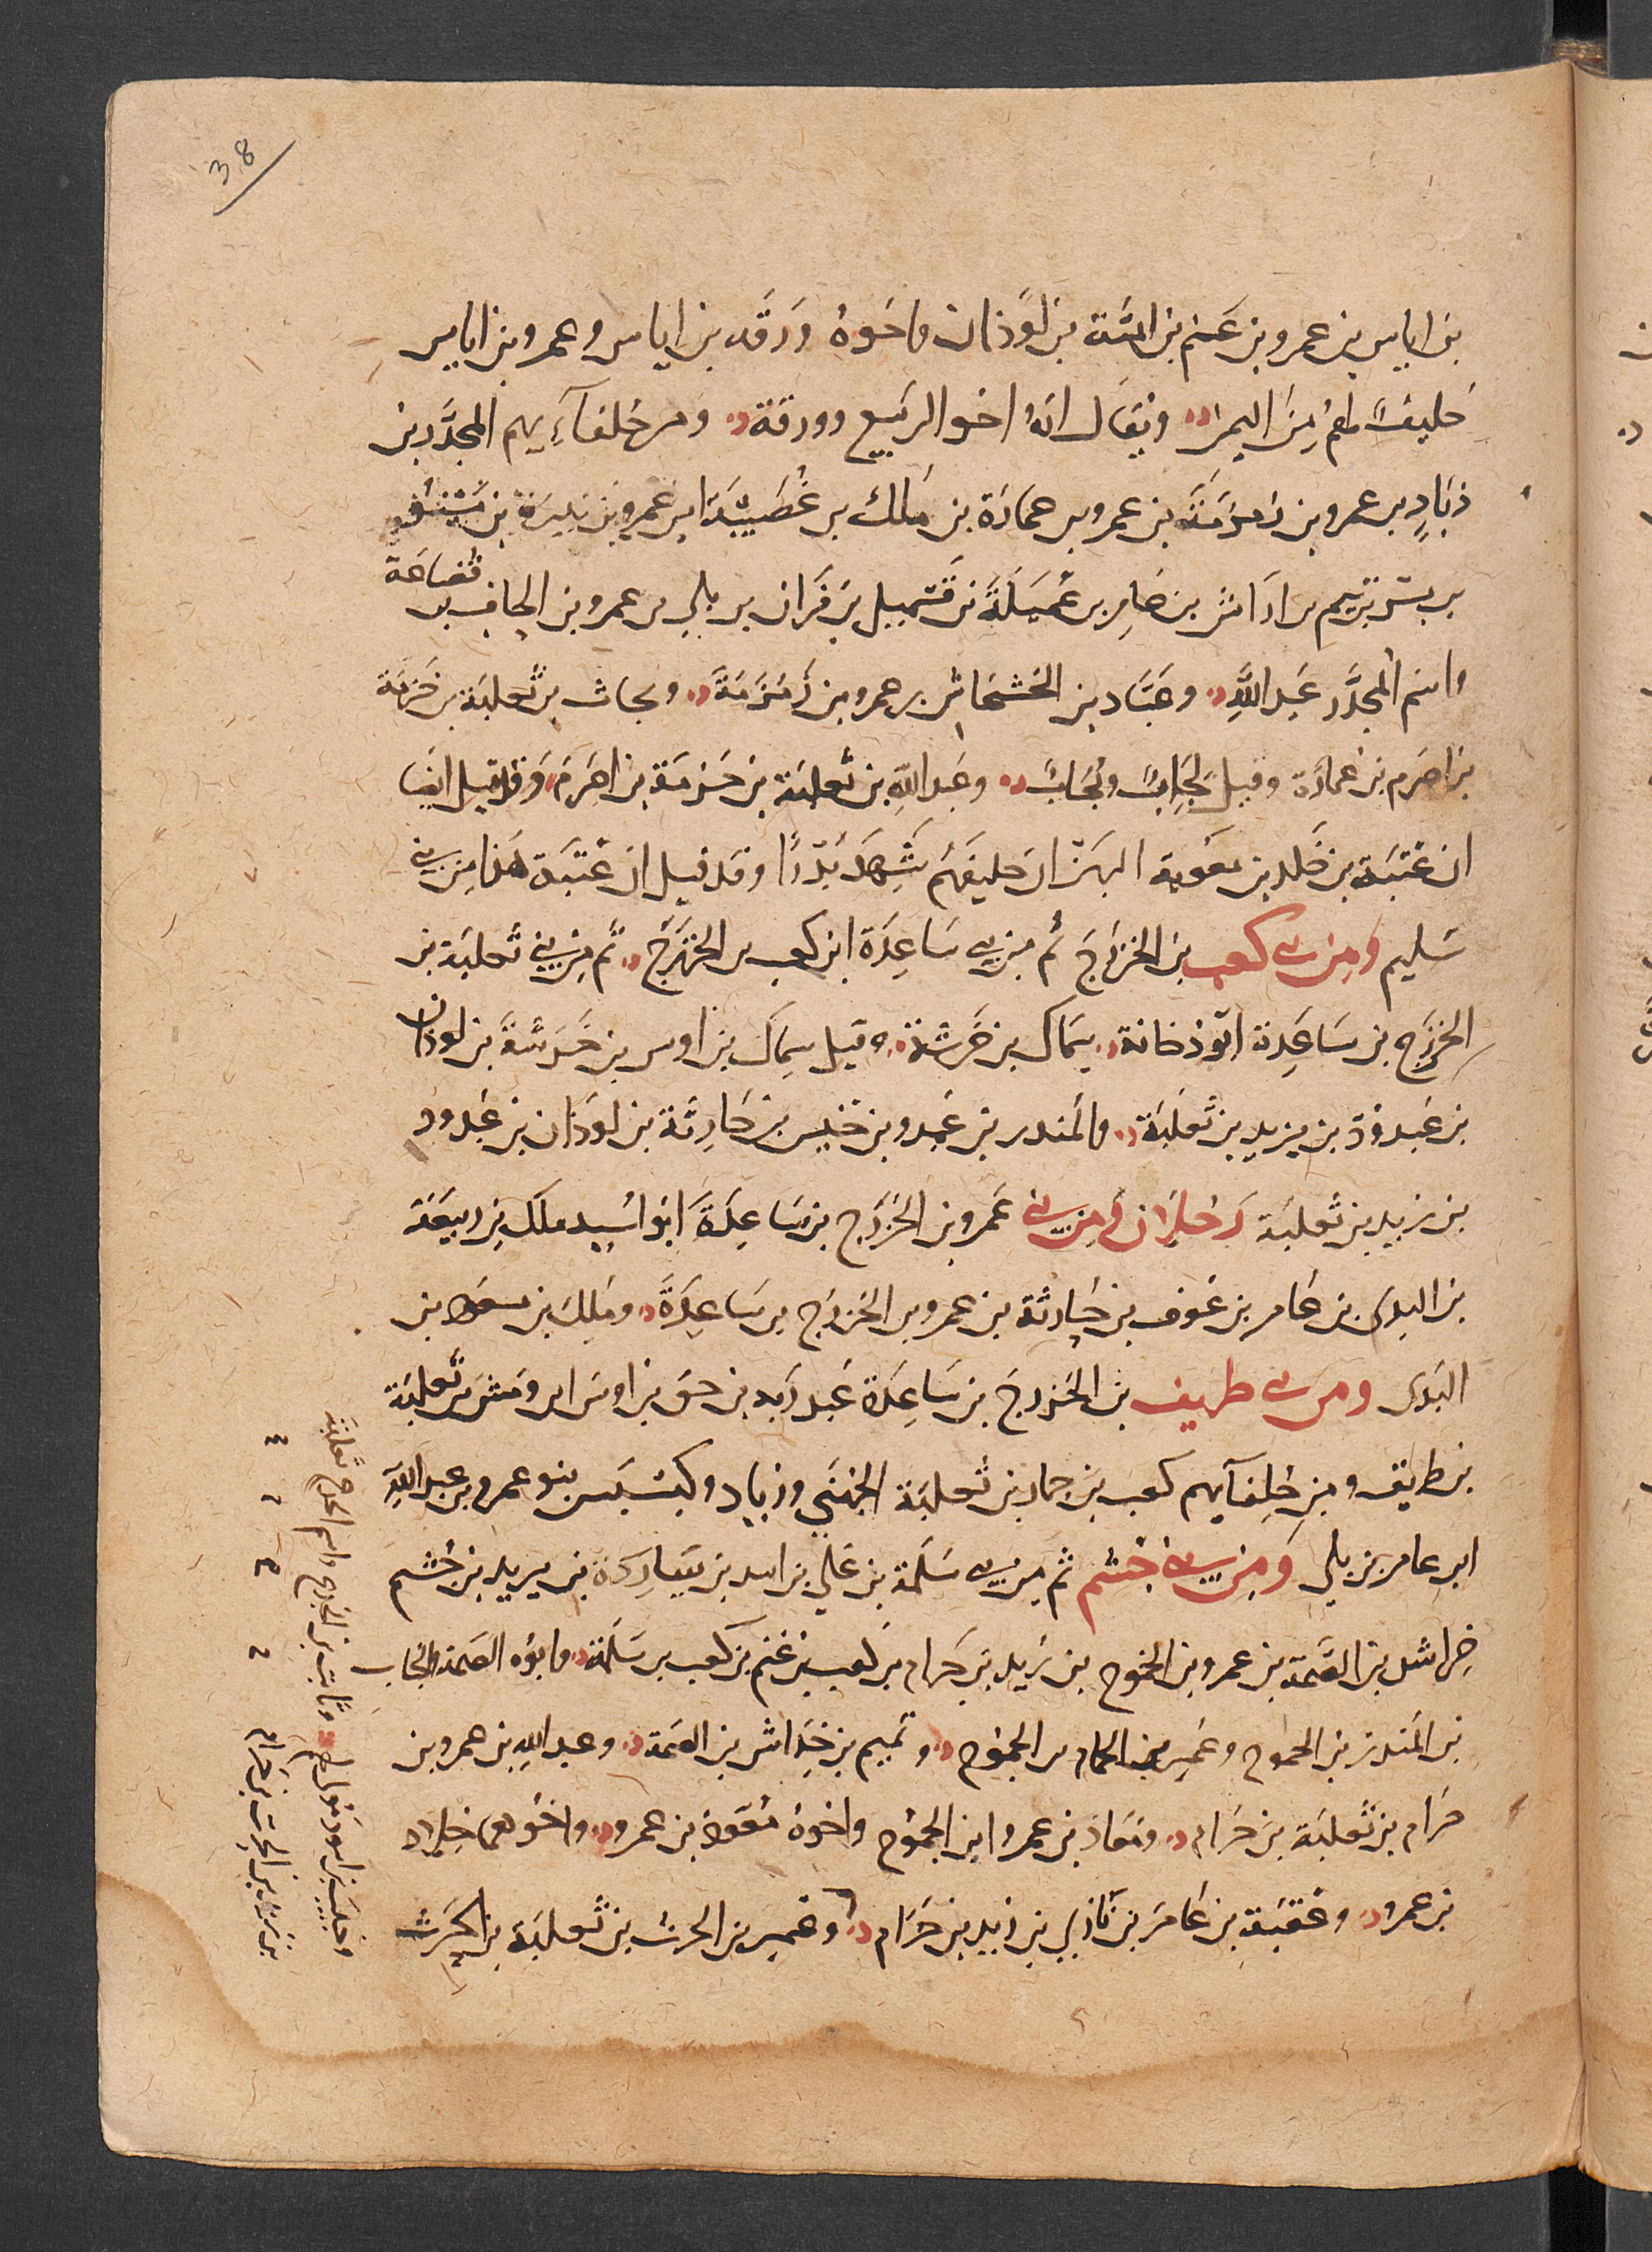 38
بن اياس بن عمرو بن غنم بن امية بن لَوْذان واخوهُ وَرَقَه بن اياس وعمرو بن اياس
حليفٌ لهم مِنَ اليمن ويقال انهُ اخو الربيع وورقة ومن حُلفآءِيهم المجذَّر بن
ذيادِ بن عمرو بن زمزمَةَ بن عمرو بن عمارَة بن ملك بن غُصَيْنَة بن عمرو بن بتيرة بن مَشنُو
بن بشر بن تيم بن اراش بن عامِر بن عُمَيلَةَ بن قسميل بن فَران بن بلي بن عمرو بن الحاف بن
قضاعة
واسم المجذَّر عبد اللَّهِ وعبَّاد بن الخشخاش بن عمرو بن زَمْزَمَةَ وبحاث بن ثعلبَة بن خَزمَة
بن اصرم بن عمارَة وقيل نَحِابٌ ونُحَابٌ وعَبد اللهِ بن ثعلبَة بن خَزمَة بن اصرمَ وَقد قيل ايضا
ان عُتبَة بن خَلد بن معوية البهرَاني حليفهم شَهدَ بدرًا وقد قيل ان عُتبَة هذا مِن بني
سليم ومن بنى كعب بن الخزرَجَ ثم من بنى سَاعِدَة ابن كعب بن الخزرَج ثم مِن بني ثعلبَة بن
الخزرَج بن سَاعِدة ابُو دُجانة سِمَاك بن خَرشة وقيل سِماك بن اوس بن خَرَشَةَ بن لوذان
بن عَبد وُدّ بن يزيد بن ثعلبَة والمنذر بن عَمرو بن خنيس بن حَارِثَة بن لوذان بن عَبدود
بن زيد بن ثعلبَة رَجُلانِ ومن بني عَمرو بن الخزرَج بن سَاعِدَةَ ابُو اسَيد ملك بن ربيعَة
بن البدى بن عَامر بن عَوف بن حَارثة بن عمرو بن الخزرَج بن سَاعِدَةَ وملِك بن مسعود بن
البَدى ومن بنى طريف بن الخزرجَ بن سَاعِدَة عَبد رَبه بن حق بن اوسَ بن وقش بن ثعلبَة
بن طريق ومن حُلفآيهم كعب بن جماز بن ثعلبَة الجُهَني وزياد وبسبس بنو عمرو بن عبد اللَّهِ
ابن عامر بن بلي وَمِن بني جُشم ثم مِن بنى سَلمَة بن عَلي بن اسد بن سَارِدَة بن يزيد بن جُشم
خِراش بن الصَّمة بن عمرو بن الجموح بن زَيد بن حَرَام بن كعب بن غنم بن كعب بن سَلمَة وابوُه الصمة والحُباب
بن المنذر بن الجموح وعُمير بن الحمام بن الجموح وتميم بن خِرَاش بن الصمة وعبد اللهِ بن عمرو بن
حرَام بن ثعلبَة بن حَرَام ومُعَاذ بن عمرو ابن الجمُوح واخوهُ مُعَوذ بن عمرو واخُوهما خلاد
بن عمرو وعُقبَة بن عَامرَ بن نَابي بن زيد بن حَرَام وعُمير بن الحرث بن ثعلبَة بن الحَرث
وحَبيب بن اسود مَولى لهم وثابت بن الجذع واسم الجذع ثعلبَة
بن زيد بن الحرث بن حَرَام